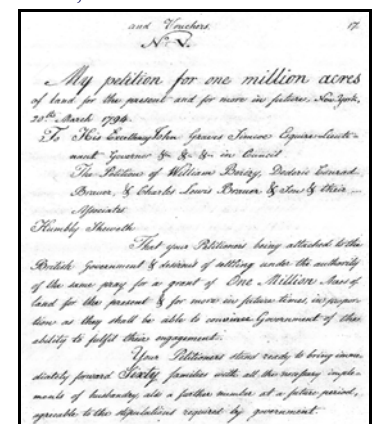 and Vouchers. 17.
No. V.
My petition for one million acres
of land for the present and for more in future, New York,
20th March 1794.
To His Excellency John Graves Simcoe Esquire Lieute-
nant Governor &c &c &c in Council
The Petitions of William Berczy, Dederic Conrad
Brower, & Charles Lewis Brower & Son & their
Associates
Humbly Sheweth
That your Petitioners being attached to the
British Government & desirous of settling under the authority
of the same pray for a grant of One Million Acres of
land for the present & for more in future times, in propor-
tion as they shall be able to convince Government of their
ability to fulfil their engagement.
Your Petitioners stand ready to bring imme-
diately forward Sixty families with all the necessary imple-
ments of husbandry, also a further number at a future period,
agreeable to the stipulations required by government.